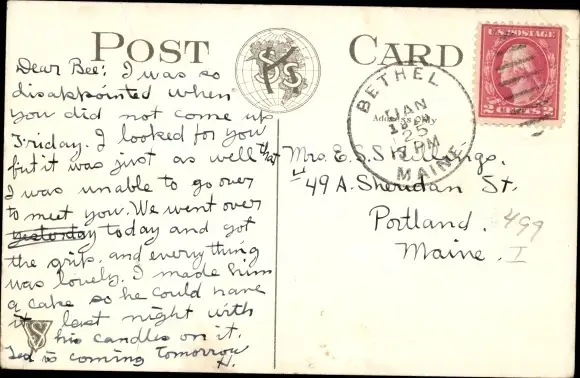 POST CARD
Dear Bee: I was so
disappointed when
you did not come up
Friday. I looked for you
but it was just as well that
I was unable to go over
to meet you. We went over
yesterday today and got
the grip, and everything
was lovely. I made him
a cake so he could have
it last night with
his candles on it.
Ted is coming tomorrow
H.
U.S. POSTAGE
2 CENTS 2
BETHEL
JAN
25
PM
MAINE.
Address Only
Mrs. E. S. Skillings.
49 A. Sheridan St.
Portland.
Maine.
499
I